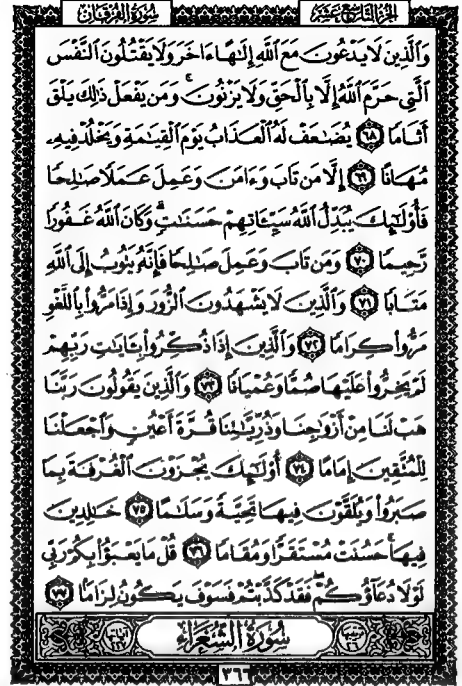 الجزء التاسع عشر سورة الفرقان
وَٱلَّذِينَ لَا يَدْعُونَ مَعَ ٱللَّهِ إِلَٰهًا ءَاخَرَ وَلَا يَقْتُلُونَ ٱلنَّفْسَ
ٱلَّتِى حَرَّمَ ٱللَّهُ إِلَّا بِٱلْحَقِّ وَلَا يَزْنُونَ ۚ وَمَن يَفْعَلْ ذَٰلِكَ يَلْقَ
أَثَامًا ﴿٦٨﴾ يُضَٰعَفْ لَهُ ٱلْعَذَابُ يَوْمَ ٱلْقِيَٰمَةِ وَيَخْلُدْ فِيهِۦ
مُهَانًا ﴿٦٩﴾ إِلَّا مَن تَابَ وَءَامَنَ وَعَمِلَ عَمَلًا صَٰلِحًا
فَأُو۟لَٰٓئِكَ يُبَدِّلُ ٱللَّهُ سَيِّـَٔاتِهِمْ حَسَنَٰتٍ ۗ وَكَانَ ٱللَّهُ غَفُورًا
رَّحِيمًا ﴿٧٠﴾ وَمَن تَابَ وَعَمِلَ صَٰلِحًا فَإِنَّهُۥ يَتُوبُ إِلَى ٱللَّهِ
مَتَابًا ﴿٧١﴾ وَٱلَّذِينَ لَا يَشْهَدُونَ ٱلزُّورَ وَإِذَا مَرُّوا۟ بِٱللَّغْوِ
مَرُّوا۟ كِرَامًا ﴿٧٢﴾ وَٱلَّذِينَ إِذَا ذُكِّرُوا۟ بِـَٔايَٰتِ رَبِّهِمْ
لَمْ يَخِرُّوا۟ عَلَيْهَا صُمًّا وَعُمْيَانًا ﴿٧٣﴾ وَٱلَّذِينَ يَقُولُونَ رَبَّنَا
هَبْ لَنَا مِنْ أَزْوَٰجِنَا وَذُرِّيَّٰتِنَا قُرَّةَ أَعْيُنٍ وَٱجْعَلْنَا
لِلْمُتَّقِينَ إِمَامًا ﴿٧٤﴾ أُو۟لَٰٓئِكَ يُجْزَوْنَ ٱلْغُرْفَةَ بِمَا
صَبَرُوا۟ وَيُلَقَّوْنَ فِيهَا تَحِيَّةً وَسَلَٰمًا ﴿٧٥﴾ خَٰلِدِينَ
فِيهَا ۚ حَسُنَتْ مُسْتَقَرًّا وَمُقَامًا ﴿٧٦﴾ قُلْ مَا يَعْبَؤُا۟ بِكُمْ رَبِّى
لَوْلَا دُعَآؤُكُمْ ۖ فَقَدْ كَذَّبْتُمْ فَسَوْفَ يَكُونُ لِزَامًا ﴿٧٧﴾
سُورَةُ الشُّعَرَاءِ
٣٦٦